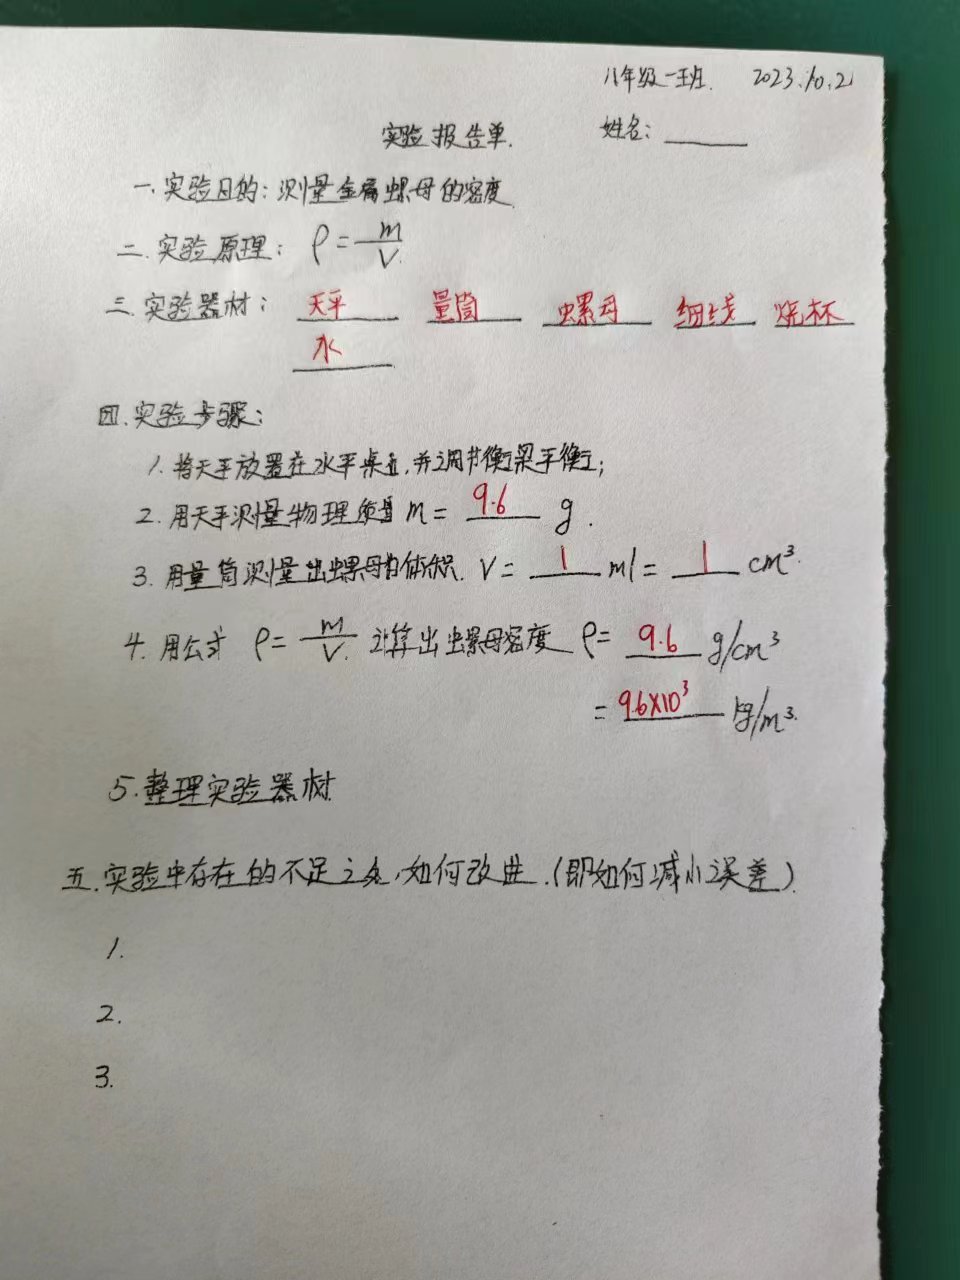 八年级一班. 2023.10.21
实验报告单. 姓名：
一. 实验目的：测量金属螺母的密度
二. 实验原理：ρ=m/V.
三. 实验器材：天平 量筒 螺母 细线 烧杯
水
四. 实验步骤：
1. 将天平放置在水平桌上,并调节衡梁平衡；
2. 用天平测量物理质量 m= 9.6 g.
3. 用量筒测量出螺母的体积. V= 1 ml= 1 cm³.
4. 用公式 ρ=m/V. 计算出螺母密度 ρ= 9.6 g/cm³
= 9.6×10³ kg/m³.
5. 整理实验器材.
五. 实验中存在的不足之处,如何改进.(即如何减小误差).
1.
2.
3.